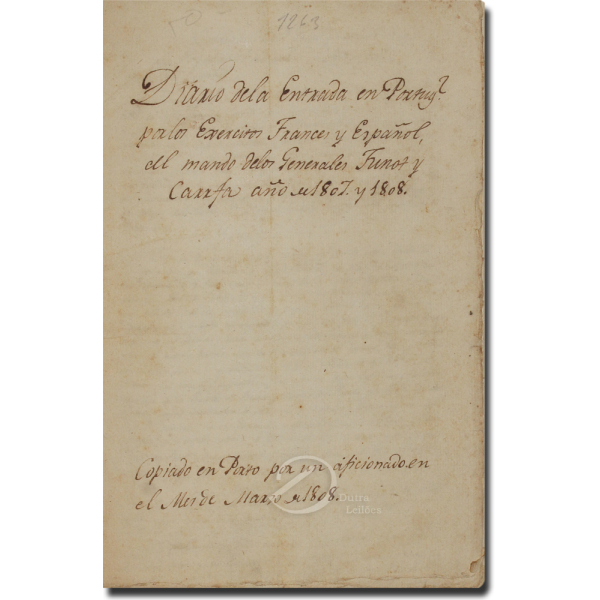 1263
Diario de la Entrada en Portug.l
por los Exercitos Frances y Español,
al mando delos Generales Junot y
Carrafa año de 1807. y 1808.
Copiado en Porto por un aficionado en
el Mes de Marzo de 1808.
Dutra
Leilões